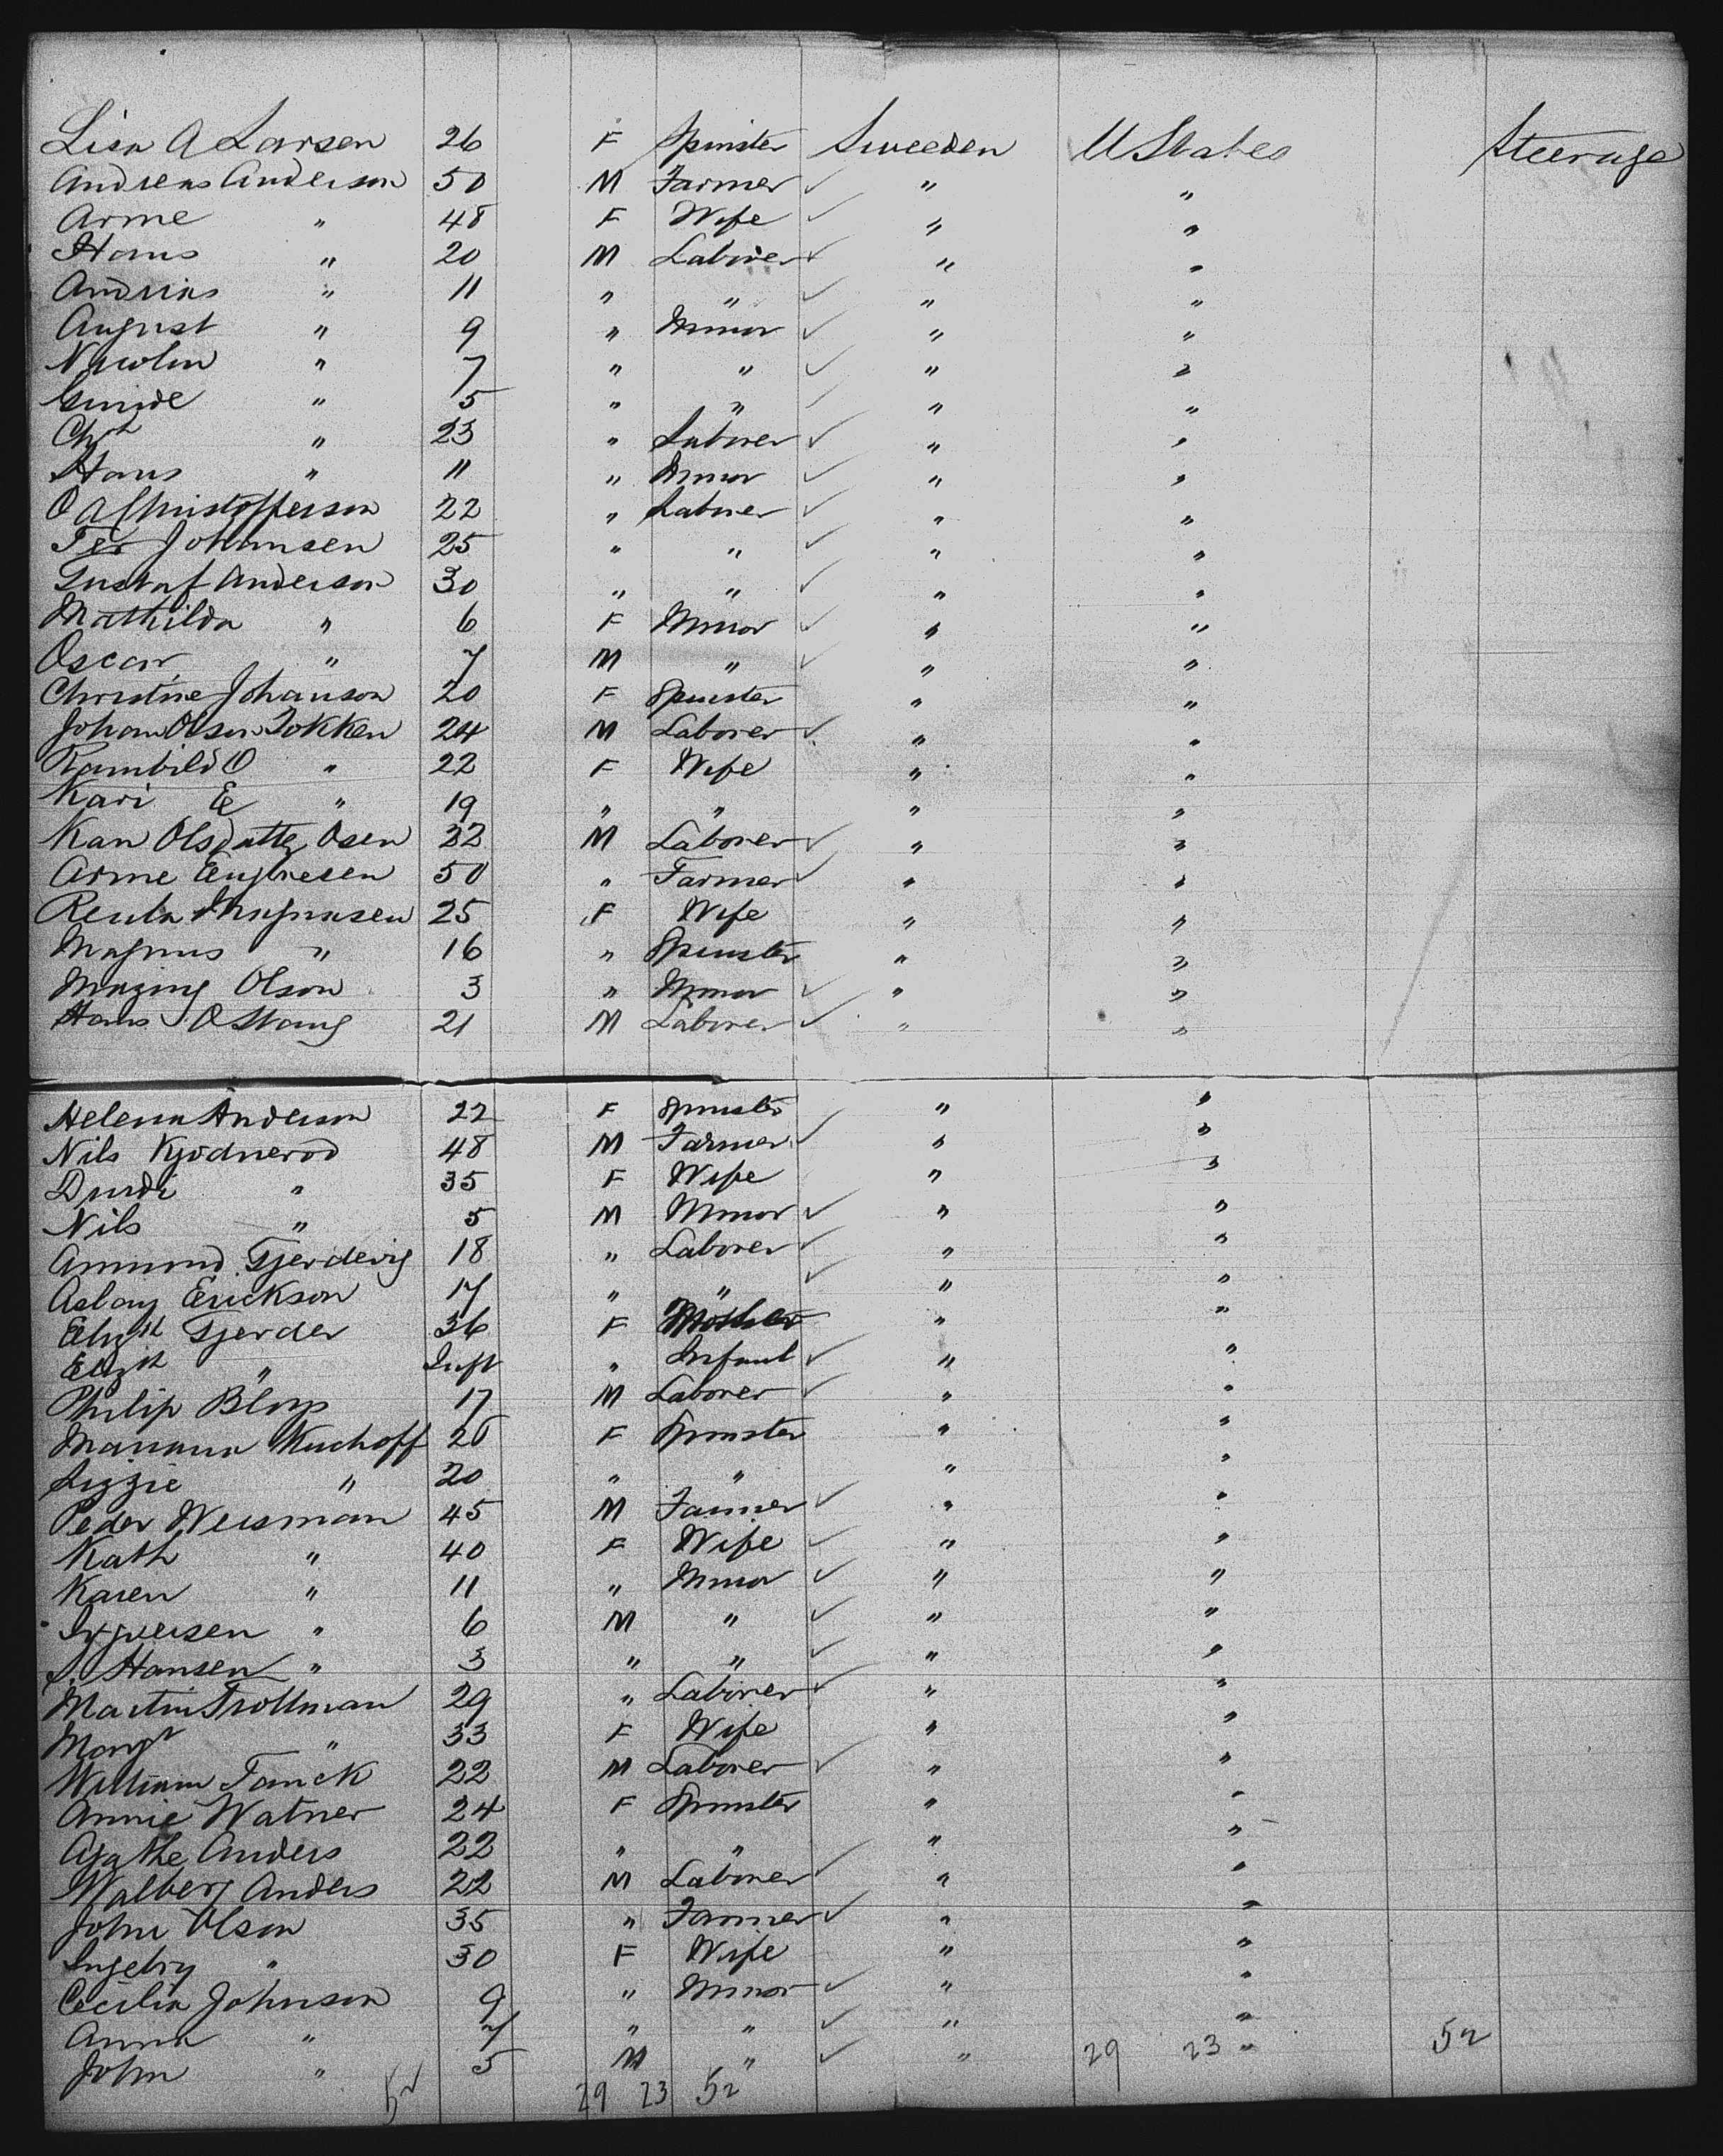 Lisa A Larsen 26 F Spinster Sweeden U States Steerage
Andreas Anderson 50 M Farmer ✓ " "
Arme " 48 F Wife ✓ " "
Hans " 20 M Laborer ✓ " "
Andrias " 11 " " ✓ " "
August " 9 " Minor ✓ " "
" 7 " " ✓ " "
" 5 " " ✓ " "
Chst " 23 " Laborer ✓ " "
Hans " 11 " Minor ✓ " "
O A Christofferson 22 " Laborer ✓ " "
Per Johansen 25 " " ✓ " "
Gustaf Anderson 30 " " ✓ " "
Mathilda " 6 F Minor ✓ " "
Oscar " 7 M " ✓ " "
Christine Johanson 20 F Spinster " "
Johan Olsen Tokken 24 M Laborer ✓ " "
Rambild O " 22 F Wife " "
Kari E " 19 " " " "
Kari Olsdatter Osen 22 M Laborer ✓ " "
Arme 50 " Farmer ✓ " "
Magnusen 25 F Wife " "
Magnus " 16 " Spinster " "
Olson 3 " Minor ✓ " "
Hans O Stang 21 M Laborer ✓ " "
Helena Anderson 22 F Spinster " "
Nils Kjodnerod 48 M Farmer ✓ " "
Durdi " 35 F Wife " "
Nils " 5 M Minor ✓ " "
Ammund Tjerdevig 18 " Laborer ✓ " "
Aslang Erickson 17 " " ✓ " "
Elizth Tjerder 36 F Mother " "
Elizth " Inft " Infant ✓ " "
Philip 17 M Laborer ✓ " "
20 F Spinster " "
Lizzie " 20 " " " "
Peder Weisman 45 M Farmer ✓ " "
Kath " 40 F Wife ✓ " "
Karen " 11 " Minor ✓ " "
" 6 M " ✓ " "
S. Hansen " 3 " " ✓ " "
Martin Trollman 29 " Laborer ✓ " "
Margt " 33 F Wife " "
William Tanck 22 M Laborer ✓ " "
Annie Watner 24 F Spinster " "
Agathe Anders 22 " " " "
Walberg Anders 22 M Laborer ✓ " "
John Olson 35 " Farmer ✓ " "
Ingebry " 30 F Wife " "
Cecilia Johnson 9 " Minor ✓ " "
Anna " 7 " " ✓ " "
John " 5 M " ✓ " 29 23 " 52
52 29 23 52